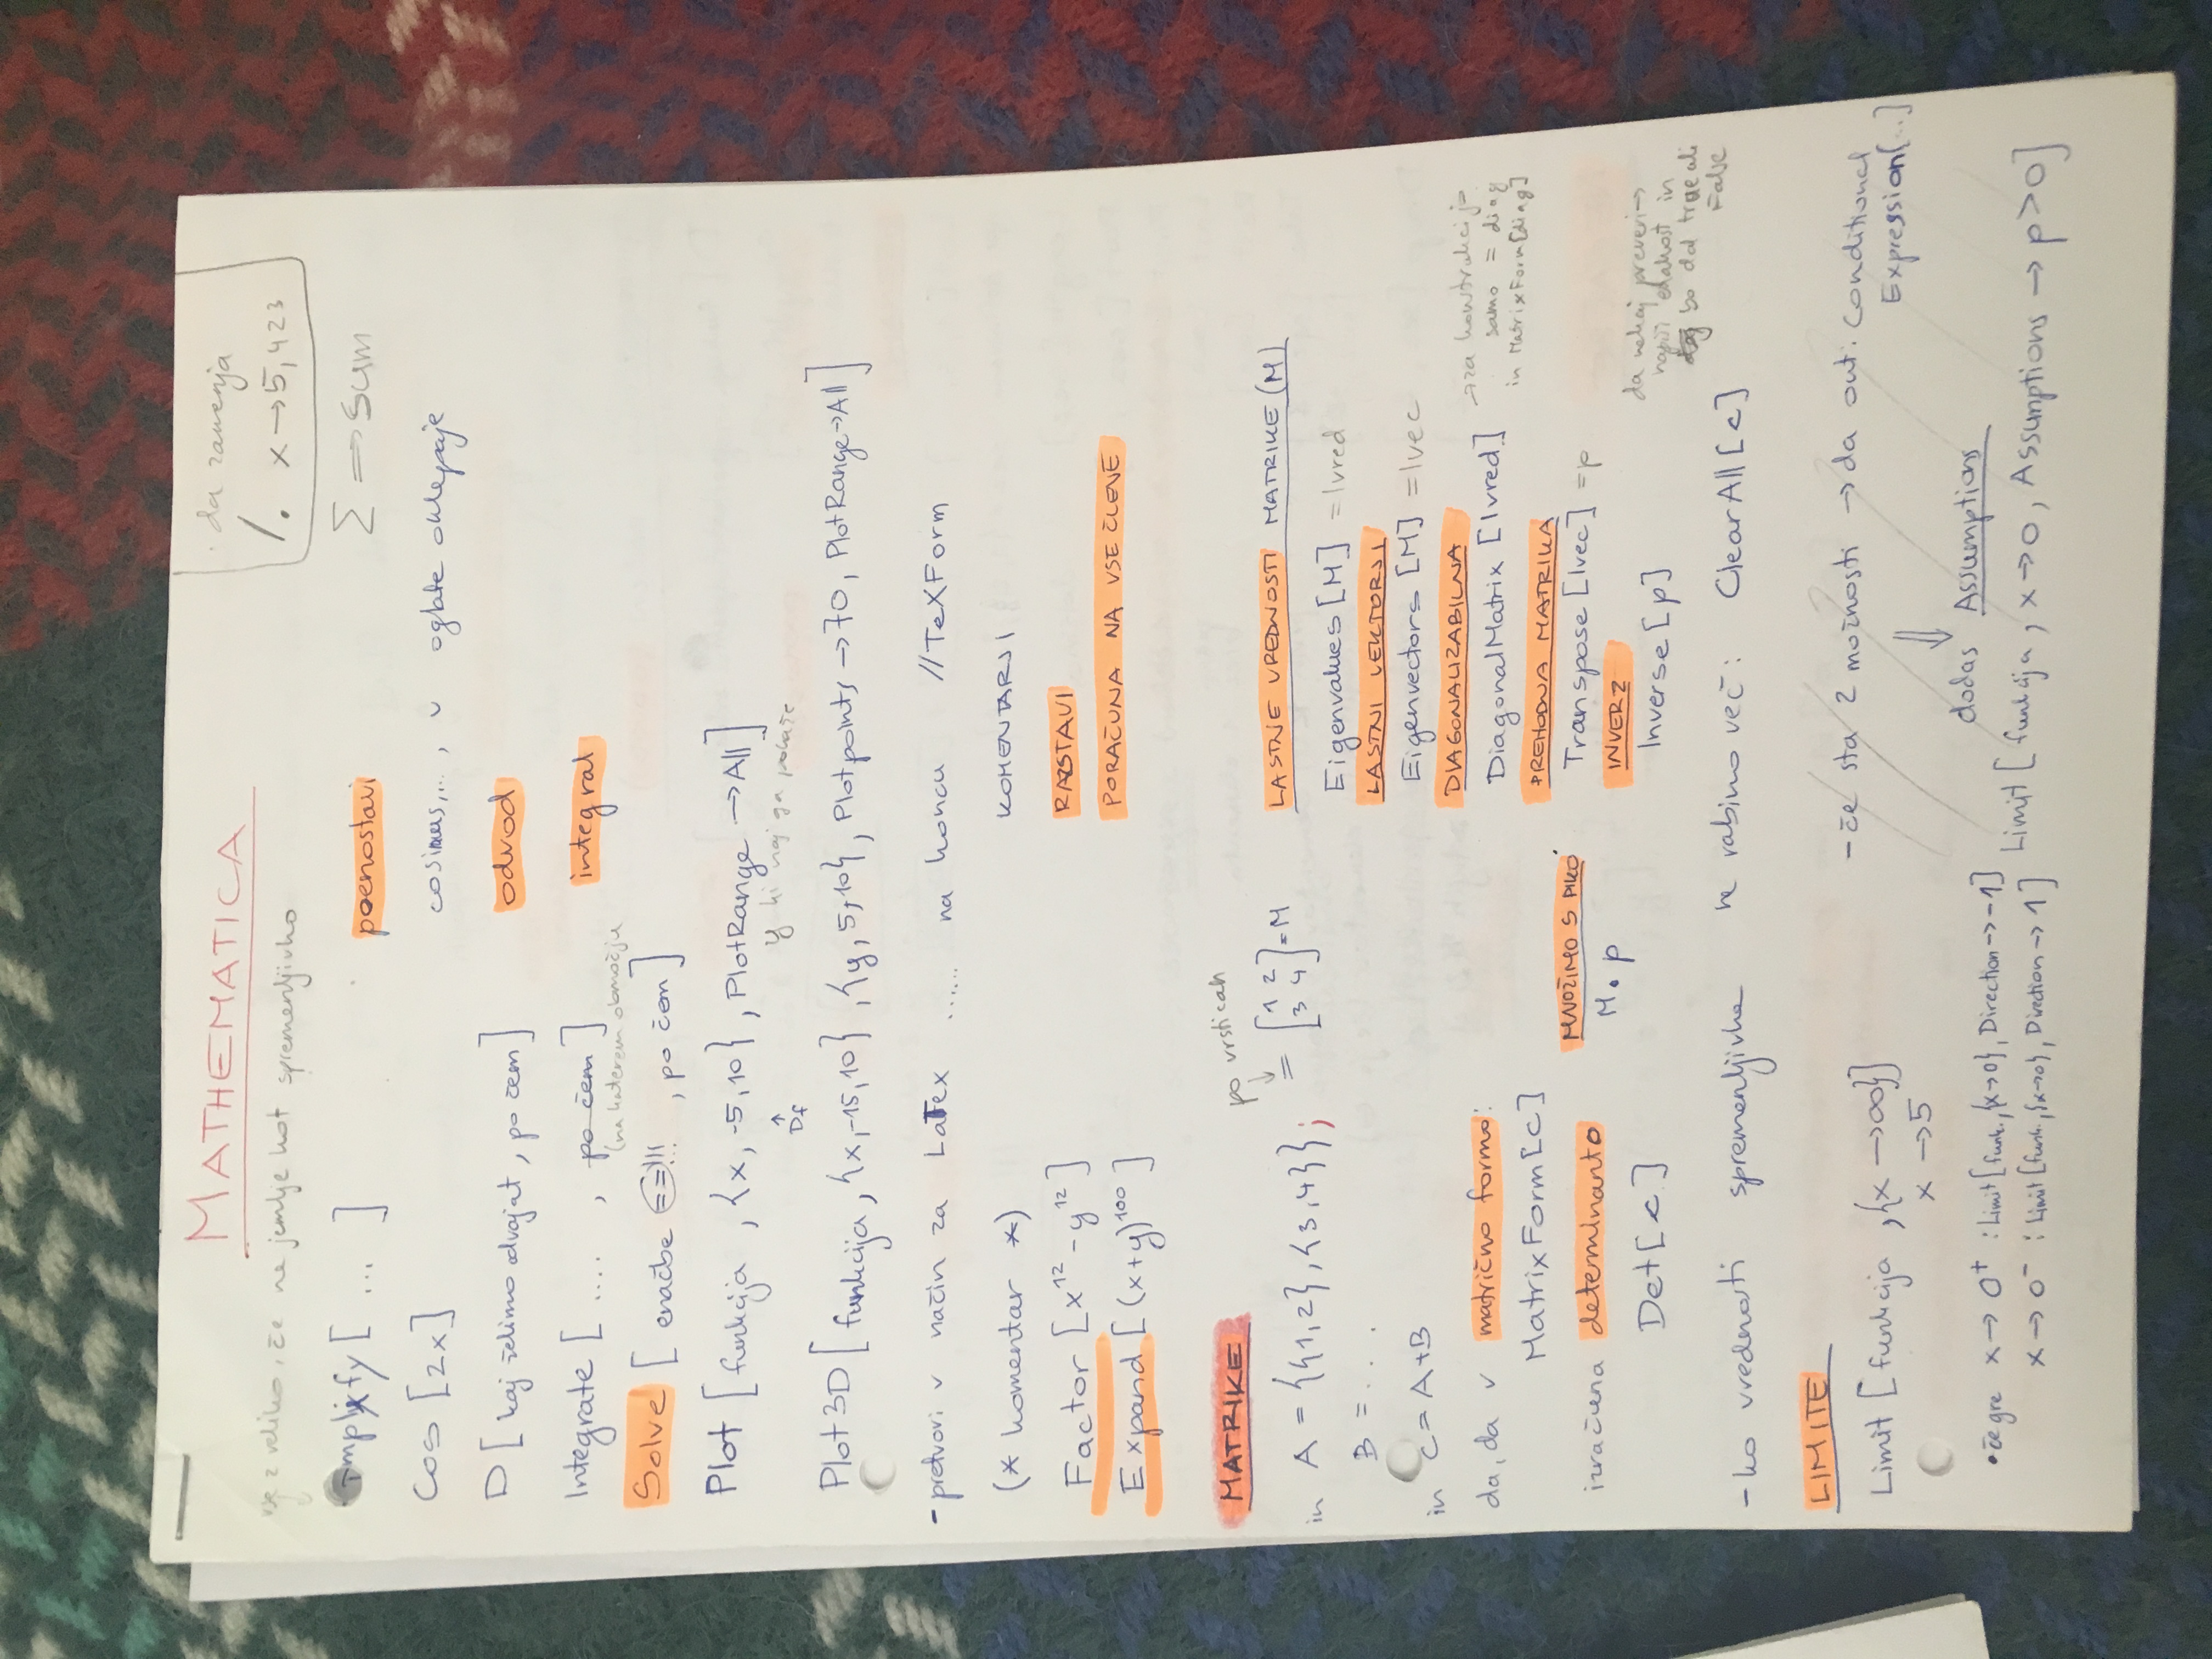 MATHEMATICA
da zamenja
/. x → 5,423
vse z veliko, če ne jemlje kot spremenljivko
Simplify [ ... ] poenostavi Σ ⇒ Sum
Cos [2x] cosinus,..., v oglate oklepaje
D [ kaj želimo odvajat, po čem ] odvod
Integrate [ .... , po čem ] integral
(na katerem območju
Solve [ enačbe ==!!! , po čem ]
Plot [ funkcija , {x, -5, 10} , PlotRange → All ]
↑ Df y ki naj ga pokaže
Plot3D [ funkcija , {x, -15, 10} , {y, 5, 10} , Plotpoints → 70, PlotRange → All ]
- pretvori v način za LaTex ...... na koncu //TeXForm
(* komentar *) KOMENTARJI
Factor [x¹² - y¹²] RAZSTAVI
Expand [(x+y)¹⁰⁰] PORAČUNA NA VSE ČLENE
MATRIKE
po vrsticah
↓
in A = {{1,2},{3,4}}; = [1 2
3 4] = M
B = ...
in c = A+B
da, da v matrično formo:
MatrixForm[c]
izračuna determinanto
Det[c]
MNOŽIMO S PIKO
M. p
LASTNE VREDNOSTI MATRIKE (M)
Eigenvalues [M] = lvred
LASTNI VEKTORJI
Eigenvectors [M] = lvec
DIAGONALIZABILNA
DiagonalMatrix [lvred]
→ za konstrukcijo
samo = diag
in MatrixForm[diag]
PREHODNA MATRIKA
Transpose [lvec] = p
INVERZ
Inverse [p]
da nekaj preveri →
napiši enakost in
bo dal true ali
False
- ko vrednosti spremenljivke ne rabimo več: ClearAll [c]
LIMITE
Limit [funkcija , {x → ∞}]
x → 5
• če gre x → 0⁺ : Limit [funk., {x→0}, Direction → -1]
x → 0⁻ : Limit [funk., {x→0}, Direction → 1]
- če sta 2 možnosti → da out: Conditional
Expression[...]
⇓
dodas Assumptions
Limit [ funkcija , x → 0, Assumptions → p > 0]